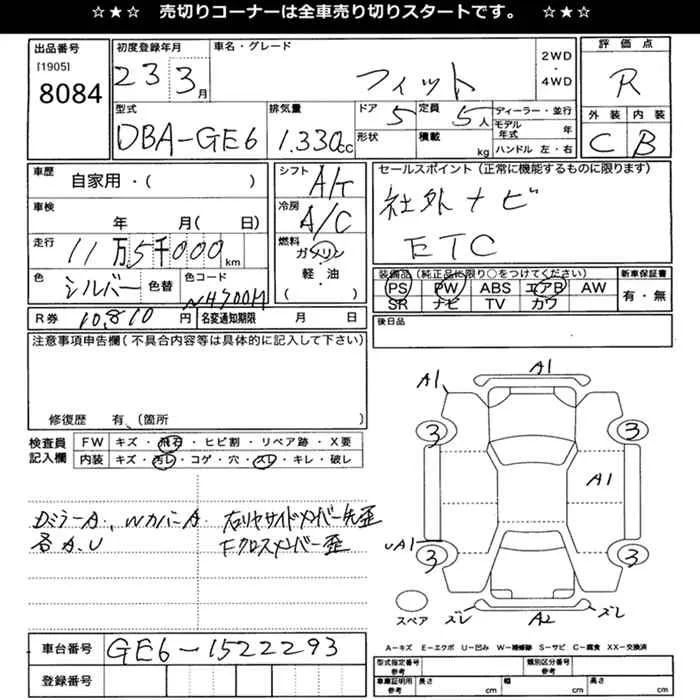 ☆★☆ 売切りコーナーは全車売り切りスタートです。 ☆★☆
出品番号
[1905]
8084
初度登録年月
23 3月
車名・グレード
フィット
2WD
・
4WD
評価点
R
外装 内装
C B
型式
DBA-GE6
排気量
1.330cc
ドア
5
定員
5人
形状
積載
kg
ディーラー・並行
モデル年式 年
ハンドル 左・右
車歴
自家用・( )
車検
年 月( 日)
走行
11万5千000km
色
シルバー
色替
色コード
シフト
A/T
冷房
A/C
燃料
ガソリン
・
軽・油
( )
セールスポイント(正常に機能するものに限ります)
社外ナビ
ETC
装備品(純正品に限り○をつけてください)
PS PW ABS エアB AW
SR ナビ TV カワ
新車保証書
有・無
R券 10,810円
名変通知期限 月 日
後日品
注意事項申告欄(不具合内容等は具体的に記入して下さい)
修復歴 有(箇所
検査員
記入欄
FW キズ・飛石・ヒビ割・リペア跡・X要
内装 キズ・汚レ・コゲ・穴・スレ・キレ・破レ
DミラーA、WカバーA
各A、U
右リヤサイドメンバー先歪
Fクロスメンバー歪
A1 A1
3 3
A1
UA1
3 3
スペア
ズレ A2 ズレ
A-キズ E-エクボ U-凹み W-補修跡 S-サビ C-腐食 XX-交換済
車台番号
GE6-1522293
登録番号
型式指定番号
参考
類別区分番号
参考
車庫証明用
参考
長さ cm 幅 cm 高さ cm